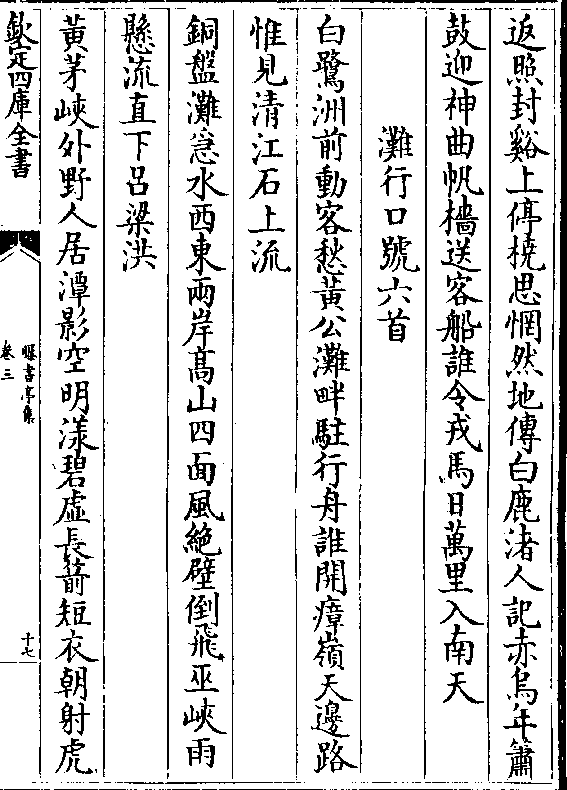 返照封谿上停橈思惘然地傳白鹿渚人記赤烏年簫
鼓迎神曲帆檣送客船誰令戎馬日萬里入南天
灘行口號六首
白鷺洲前動客愁黃公灘畔駐行舟誰開瘴嶺天邊路
惟見清江石上流
銅盤灘急水西東兩岸髙山四面風絶壁倒飛巫峽雨
懸流直下吕梁洪
黃茅峽外野人居潭影空明漾碧虛長箭短衣朝射虎
欽定四庫全書
曝書亭集
卷三
十七